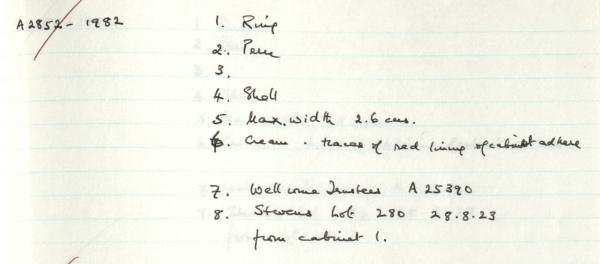 A2852-1982 1. Ring
2. Peru
3.
4. Shell
5. Max. width 2.6 cms.
6. Cream. traces of red lining of cabinet adhere
7. Wellcome Trustees A 25390
8. Stevens Lot 280 28.8.23
from cabinet 1.